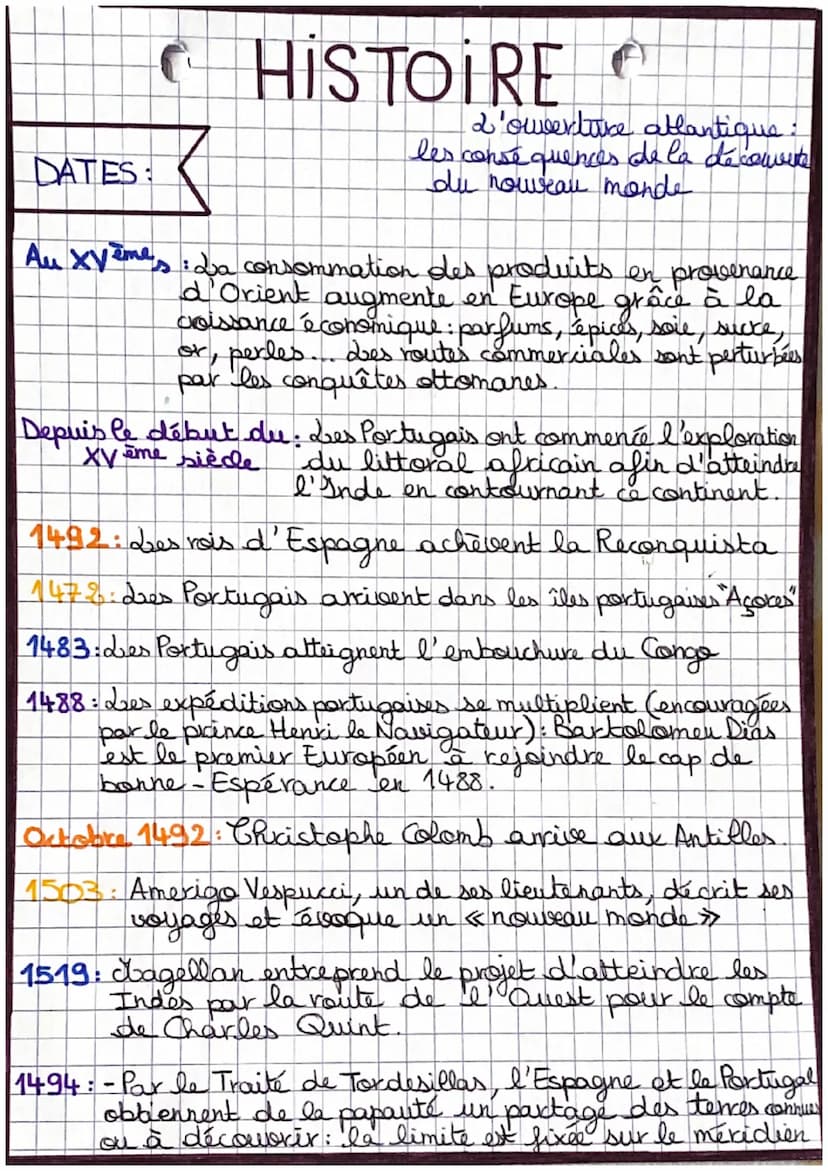 HiSTOiRE
L'ouverture atlantique :
les conséquences de la découverte
du nouveau monde
DATES :
Au XVèmes : La consommation des produits en provenance
d'Orient augmente en Europe grâce à la
croissance économique : parfums, épices, soie, sucre,
or, perles... Les routes commerciales sont perturbées
par les conquêtes ottomanes.
Depuis le début du : Les Portugais ont commencé l'exploration
XVème siècle du littoral africain afin d'atteindre
l'Inde en contournant ce continent.
1492 : Les rois d'Espagne achèvent la Reconquista
1472 : Les Portugais arrivent dans les îles portugaises "Açores"
1483 : Les Portugais atteignent l'embouchure du Congo
1488 : Les expéditions portugaises se multiplient (encouragées
par le prince Henri le Navigateur) : Bartolomeu Dias
est le premier Européen à rejoindre le cap de
bonne-Espérance en 1488.
Octobre 1492 : Christophe Colomb arrive aux Antilles.
1503 : Amerigo Vespucci, un de ses lieutenants, décrit ses
voyages et évoque un « nouveau monde »
1519 : Magellan entreprend le projet d'atteindre les
Indes par la route de l'Ouest pour le compte
de Charles Quint.
1494 : - Par le Traité de Tordesillas, l'Espagne et le Portugal
obtiennent de la papauté un partage des terres connues
ou à découvrir : la limite est fixée sur le méridien